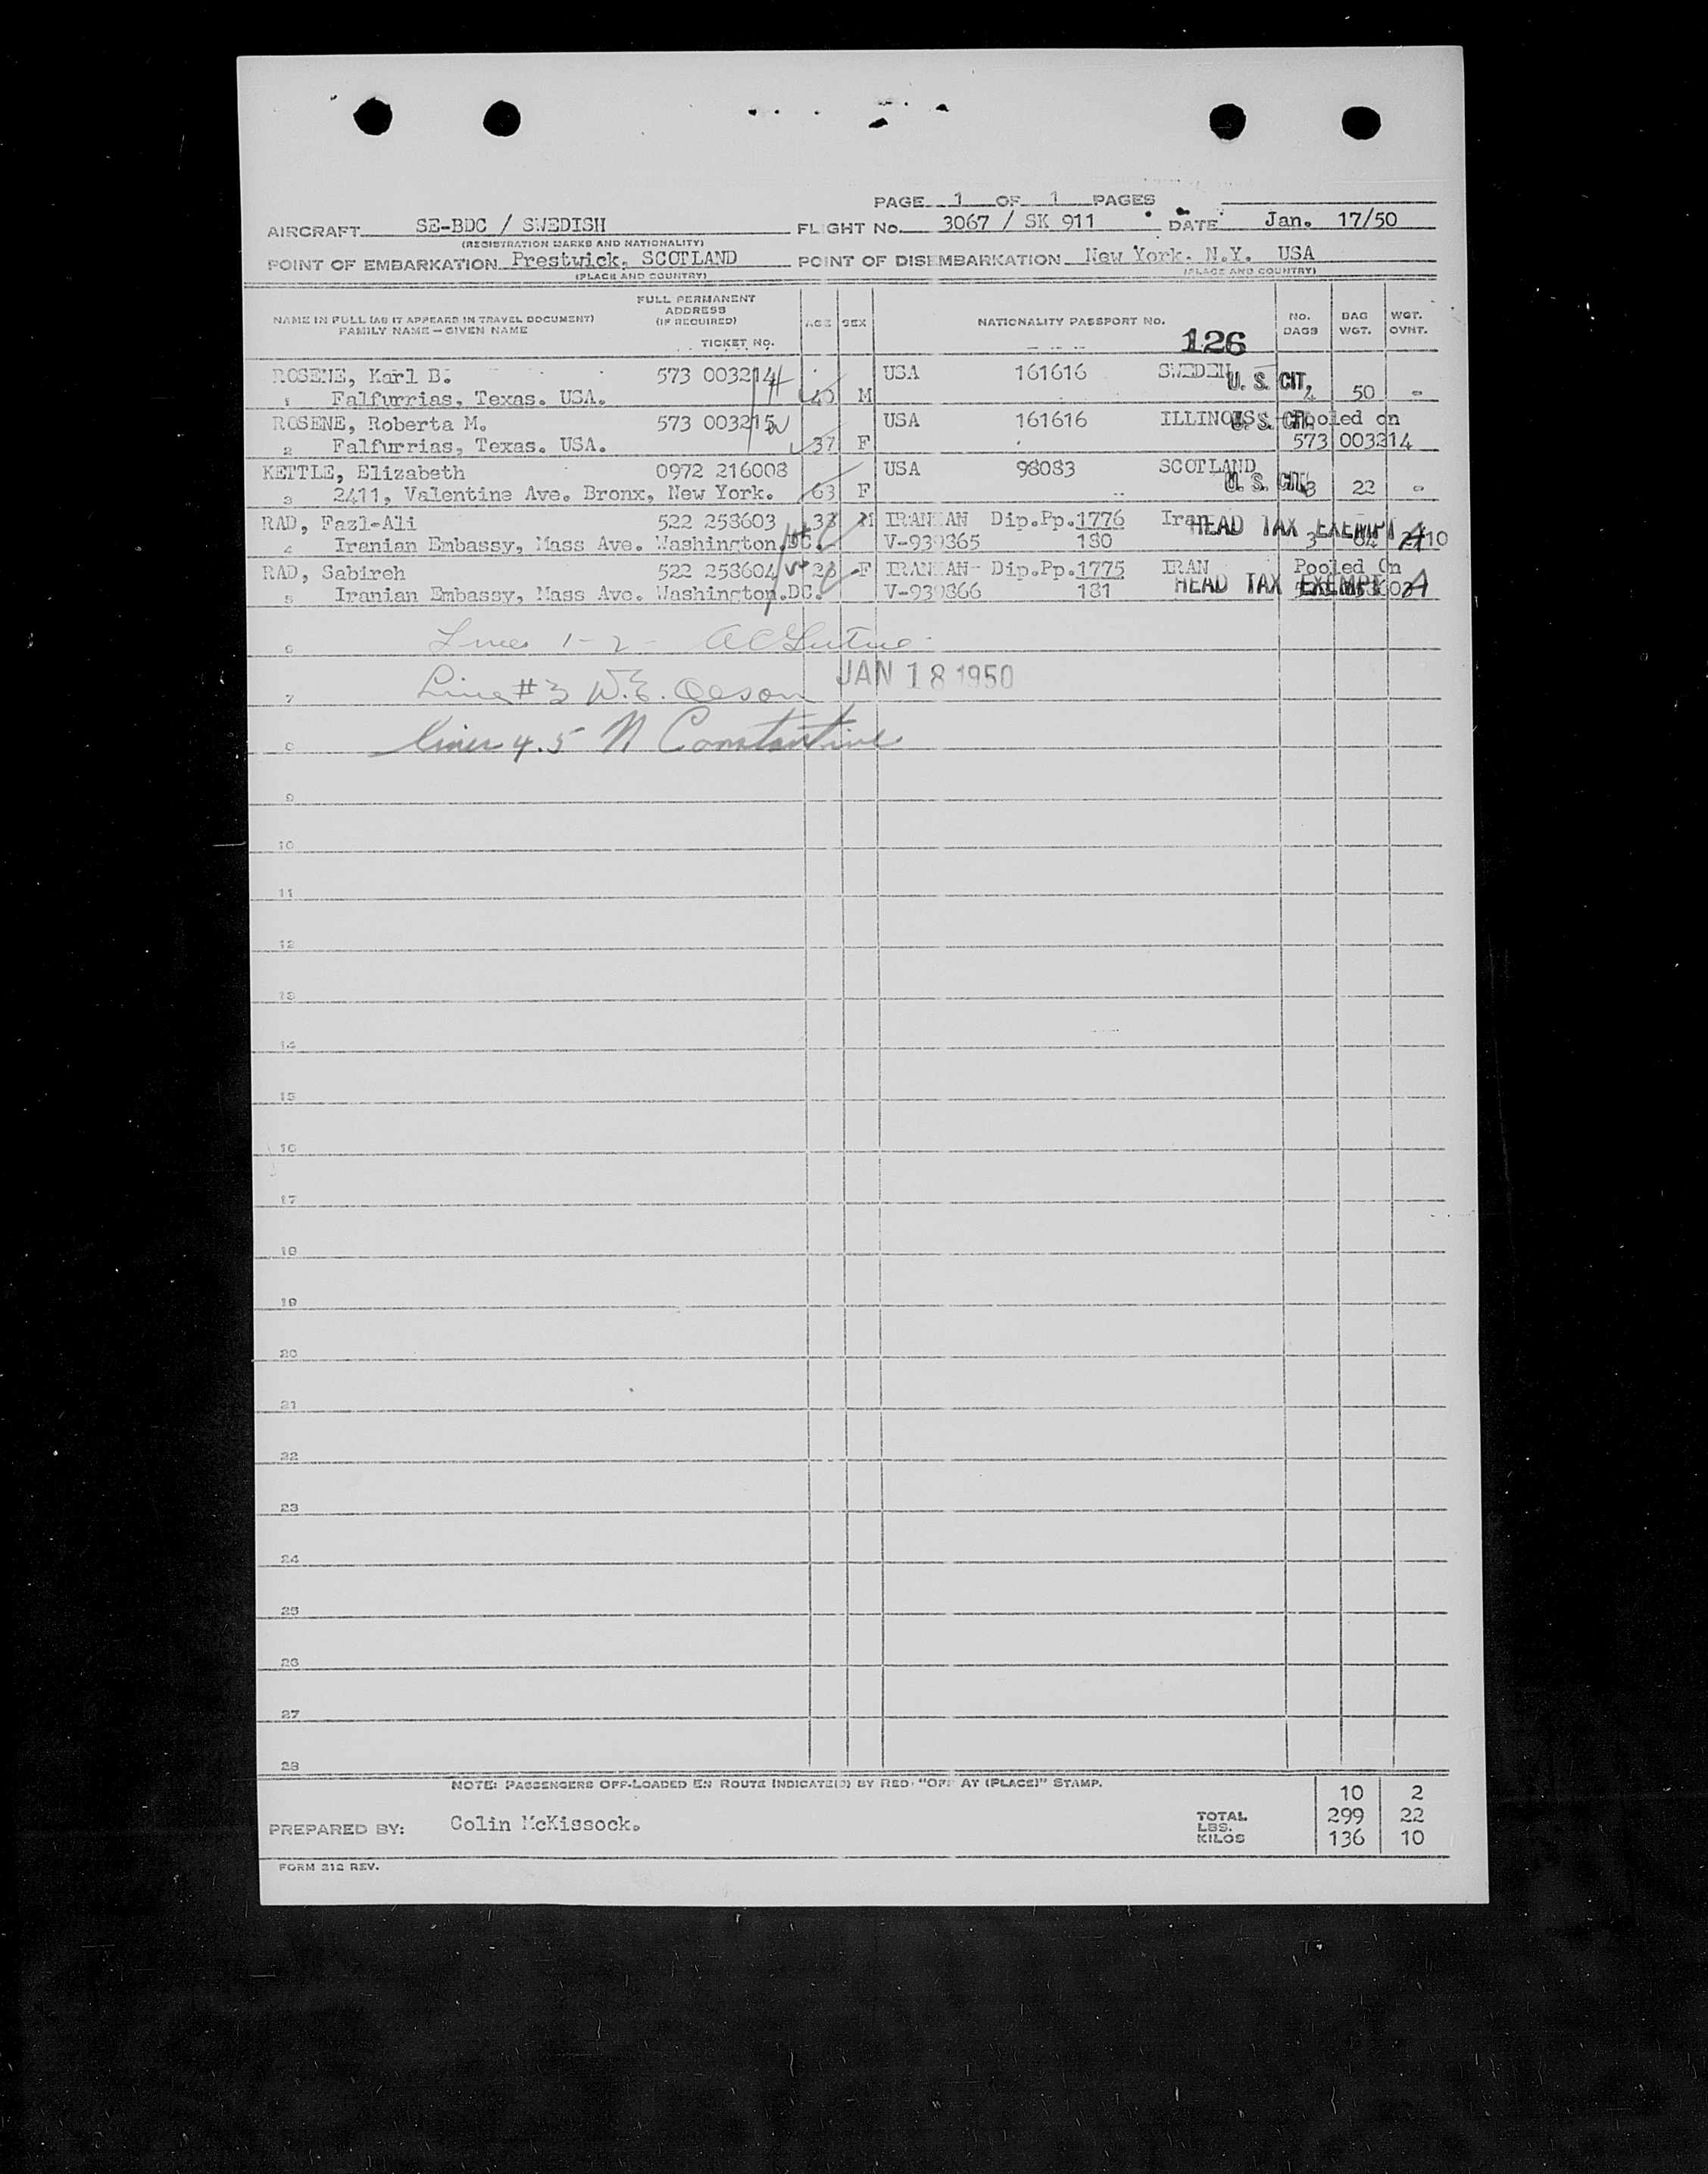 PAGE 1 OF 1 PAGES
AIRCRAFT SE-BDC / SWEDISH FLIGHT No. 3067 / SK 911 DATE Jan. 17/50
(REGISTRATION MARKS AND NATIONALITY)
POINT OF EMBARKATION Prestwick, SCOTLAND POINT OF DISEMBARKATION New York. N.Y. USA
(PLACE AND COUNTRY) (PLACE AND COUNTRY)
NAME IN FULL (AS IT APPEARS IN TRAVEL DOCUMENT) FAMILY NAME—GIVEN NAME FULL PERMANENT ADDRESS (IF REQUIRED) TICKET NO. AGE SEX NATIONALITY PASSPORT NO. NO. BAGS BAG WGT. WGT. OVHT.
126
ROSENE, Karl B. 573 003214 USA 161616 SWEDEN U. S. CIT,
1 Falfurrias, Texas. USA. M 4 50 -
ROSENE, Roberta M. 573 003215 USA 161616 ILLINOIS U. S. CIT, Pooled on
2 Falfurrias, Texas. USA. 37 F 573 003214
KETTLE, Elizabeth 0972 216008 USA 98083 SCOTLAND
3 2411, Valentine Ave. Bronx, New York. 63 F U. S. CIT, 3 22 -
RAD, Fazl-Ali 522 258603 33 M IRANIAN Dip.Pp.1776 Iran HEAD TAX EXEMPT
4 Iranian Embassy, Mass Ave. Washington.DC. V-939865 180 3 64 10
RAD, Sabireh 522 258604 F IRANIAN- Dip.Pp.1775 IRAN Pooled On
5 Iranian Embassy, Mass Ave. Washington.DC. V-939866 181 HEAD TAX EXEMPT
6 Lines 1-2-
JAN 18 1950
7 Line #3 W.E. Olson
8 lines 4.5 N Constantine
9
10
11
12
13
14
15
16
17
18
19
20
21
22
23
24
25
26
27
28
NOTE: PASSENGERS OFF-LOADED EN ROUTE INDICATE(D) BY RED "OFF AT (PLACE)" STAMP.
10 2
PREPARED BY: Colin McKissock. TOTAL LBS. 299 22
KILOS 136 10
FORM 212 REV.